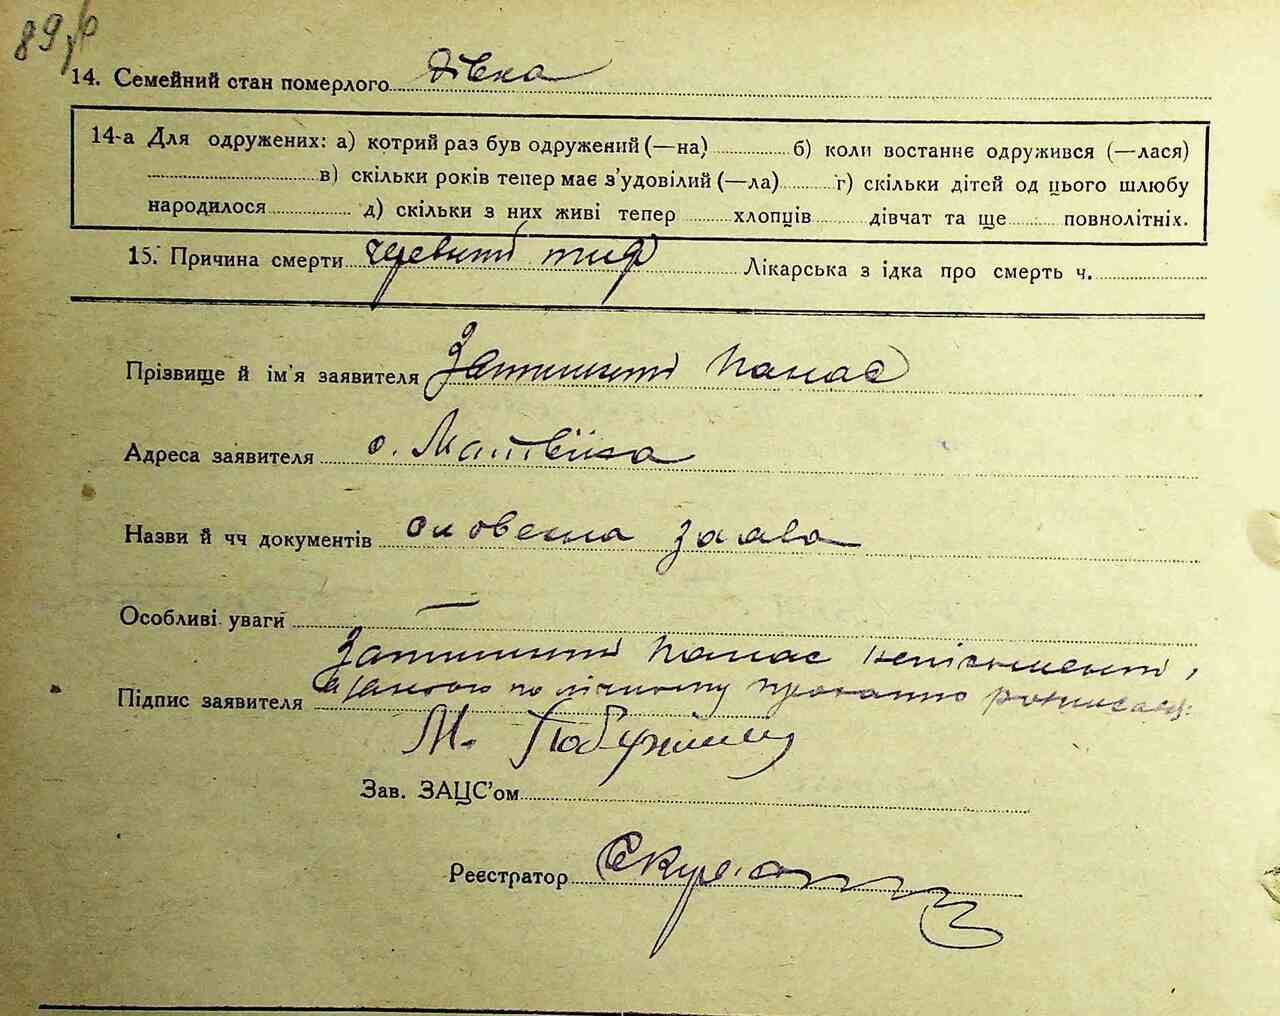 89
14. Семейний стан померлого дівка
14-а Для одружених: а) котрий раз був одружений (—на) б) коли востаннє одружився (—лася)
в) скільки років тепер має з'удовілий (—ла) г) скільки дітей од цього шлюбу
народилося д) скільки з них живі тепер хлопців дівчат та ще повнолітніх.
15. Причина смерти черевний тиф Лікарська з ідка про смерть ч.
Прізвище й ім'я заявителя Панас
Адреса заявителя с. Матвіїха
Назви й чч документів словесна заява
Особливі уваги —
Панас неписьменний,
Підпис заявителя а за нього по личному проханню розписавсь
М.
Зав. ЗАЦС'ом
Реєстратор